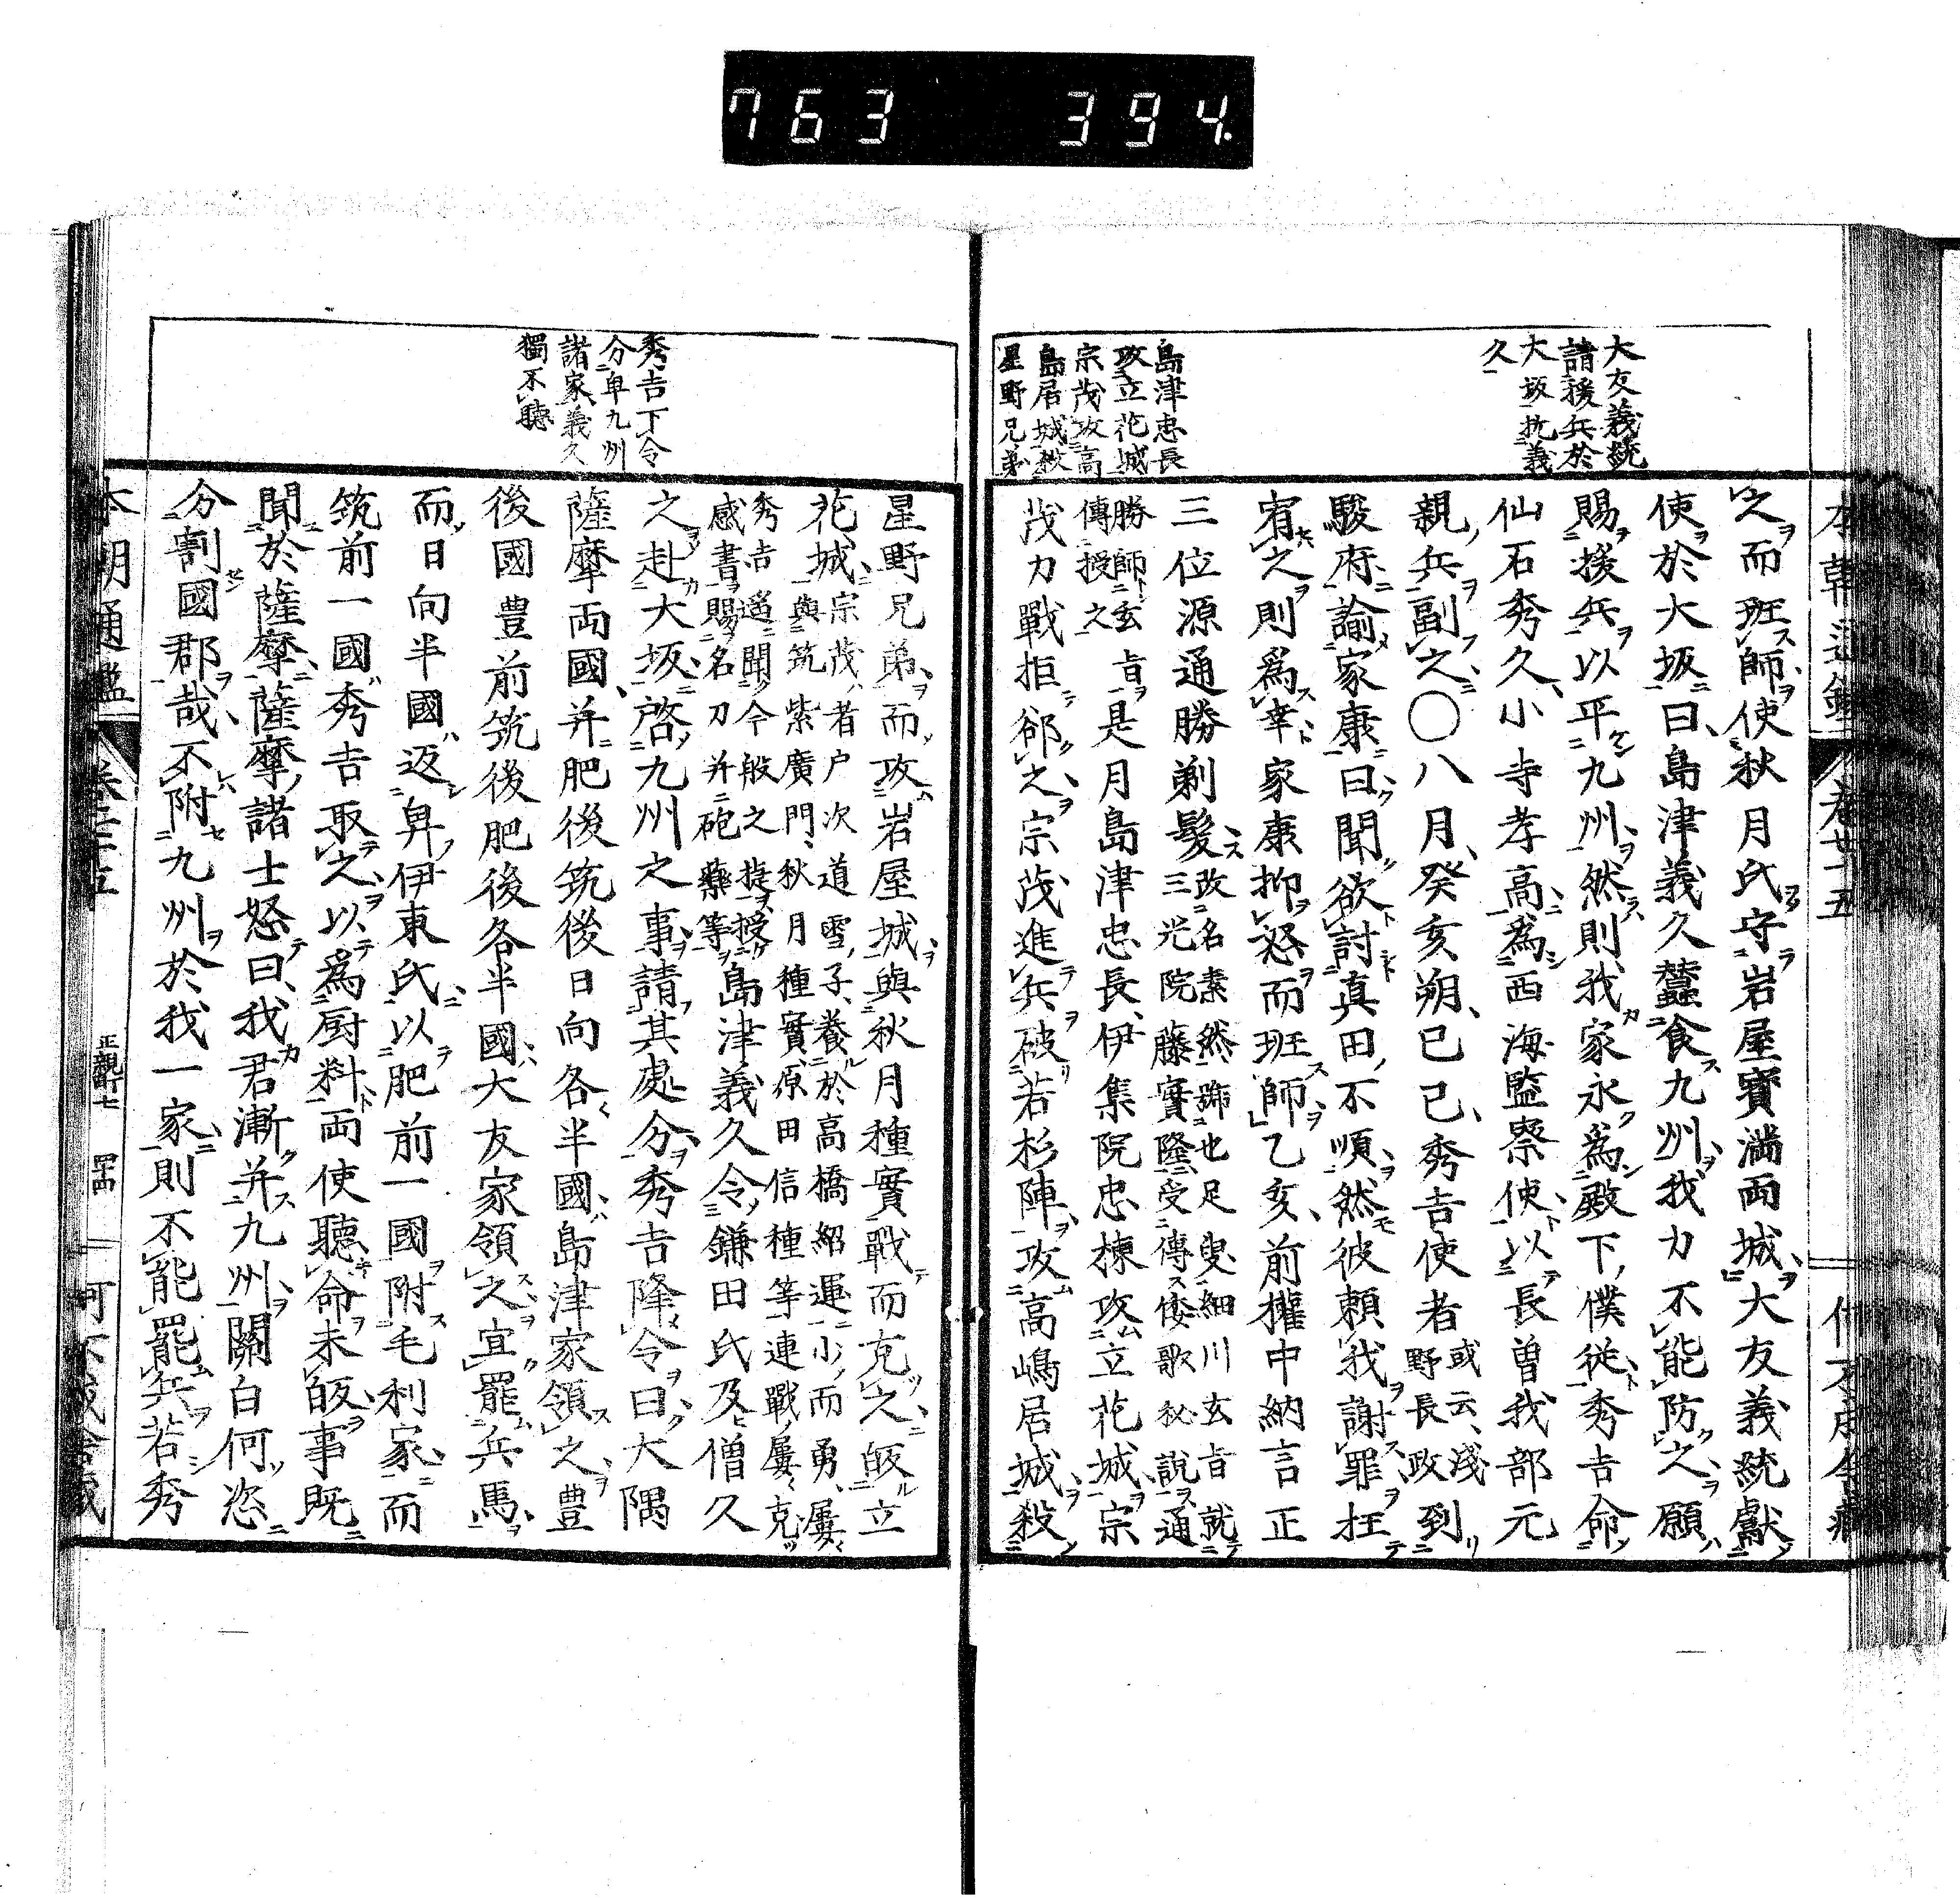 763 394.
大友義統
請援兵於
大坂抗義
久
島津忠長
攻立花城
宗茂攻高
島居城殺
星野兄弟
之而班師使秋月氏守岩屋寳満両城大友義統獻
使於大坂曰島津義久蠶食九州我力不能防之願
賜援兵以平九州然則我家永為殿下僕從秀吉命
仙石秀久小寺孝高為西海監察使以長曽我部元
親兵副之〇八月癸亥朔己巳秀吉使者或云淺野長政到
駿府諭家康曰聞欲討真田不順然彼頼我謝罪抂
宥之則為幸家康抑怒而班師乙亥前權中納言正
三位源通勝剃髪改名素然號也足叟細川玄旨就三光院藤實隆受傳倭歌秘説通
勝師玄旨傳授之是月島津忠長伊集院忠棟攻立花城宗
茂力戰拒郤之宗茂進兵破若杉陣攻高嶋居城殺
秀吉下令
分卑九州
諸家義久
獨不聽
星野兄弟而攻岩屋城與秋月種實戰而克之皈立
花城宗茂者户次道雪子養於高橋紹運小而勇屡與筑紫廣門秋月種實原田信種等連戰屡克
秀吉遥聞今般之捷授感書賜名刀并砲藥等島津義久令鎌田氏及僧久
之赴大坂啓九州之事請其處分秀吉降令曰大隅
薩摩両國并肥後筑後日向各半國島津家領之豊
後國豊前筑後肥後各半國大友家領之宜罷兵馬
而日向半國返卑伊東氏以肥前一國附毛利家而
筑前一國秀吉取之以為厨料両使聽命未皈事既
聞於薩摩薩摩諸士怒曰我君漸并九州關白何恣
分割國郡哉不附九州於我一家則不能罷兵若秀
本朝通鑑 卷 正親町七